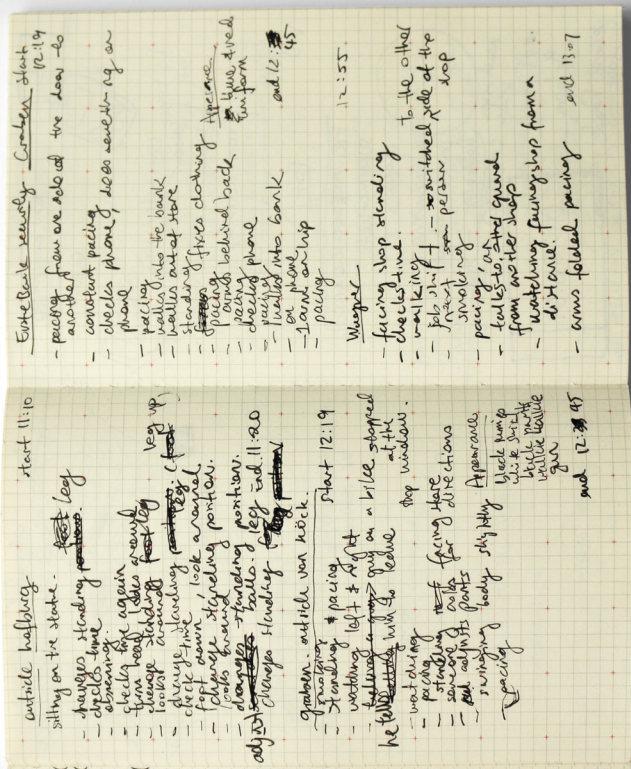 outside hofburg start 11:10
sitting on the statue.
- changes standing leg
- checks time
- observing.
- checks time again
- turn head, looks around
- change standing leg
- looks around
- change standing leg (leg up)
- check time
- foot down, look around
- change standing position.
- looks around
- changes standing position.
adjusts balls
- changes standing leg - end 11:20
graben outside van
- smoking start 12:19
- standing & pacing
- watching left & right
- guy on a bike stopped at the shop window.
he tells him to leave
- watching
- pacing
- standing facing store
- someone asks for directions
- adjusts pants
- swinging body slightly
- pacing
Appearance
black jumper
white shirt
black pants
walkie talkie
gun
end 12:45
Erste Bank security Graben start 12:19
- pacing from one side of the door to another
- constant pacing
- checks phone, does something on phone
- pacing
- walks into the bank
- walks out of store
- standing
- fixes clothing
- pacing
- arms behind back
- pacing
- checks phone
- pacing
- walks into bank
- on phone
- 1 arm on hip
- pacing
Appearance
blue & red
uniform
end 12:45
Wagner 12:55
- facing shop standing
- checks time.
- walking
- job shift - switched to the other side of the shop
next person
- smoking
- pacing,
- talks to other guard from another shop
- watching facing shop from a distance.
- arms folded pacing end 13:07